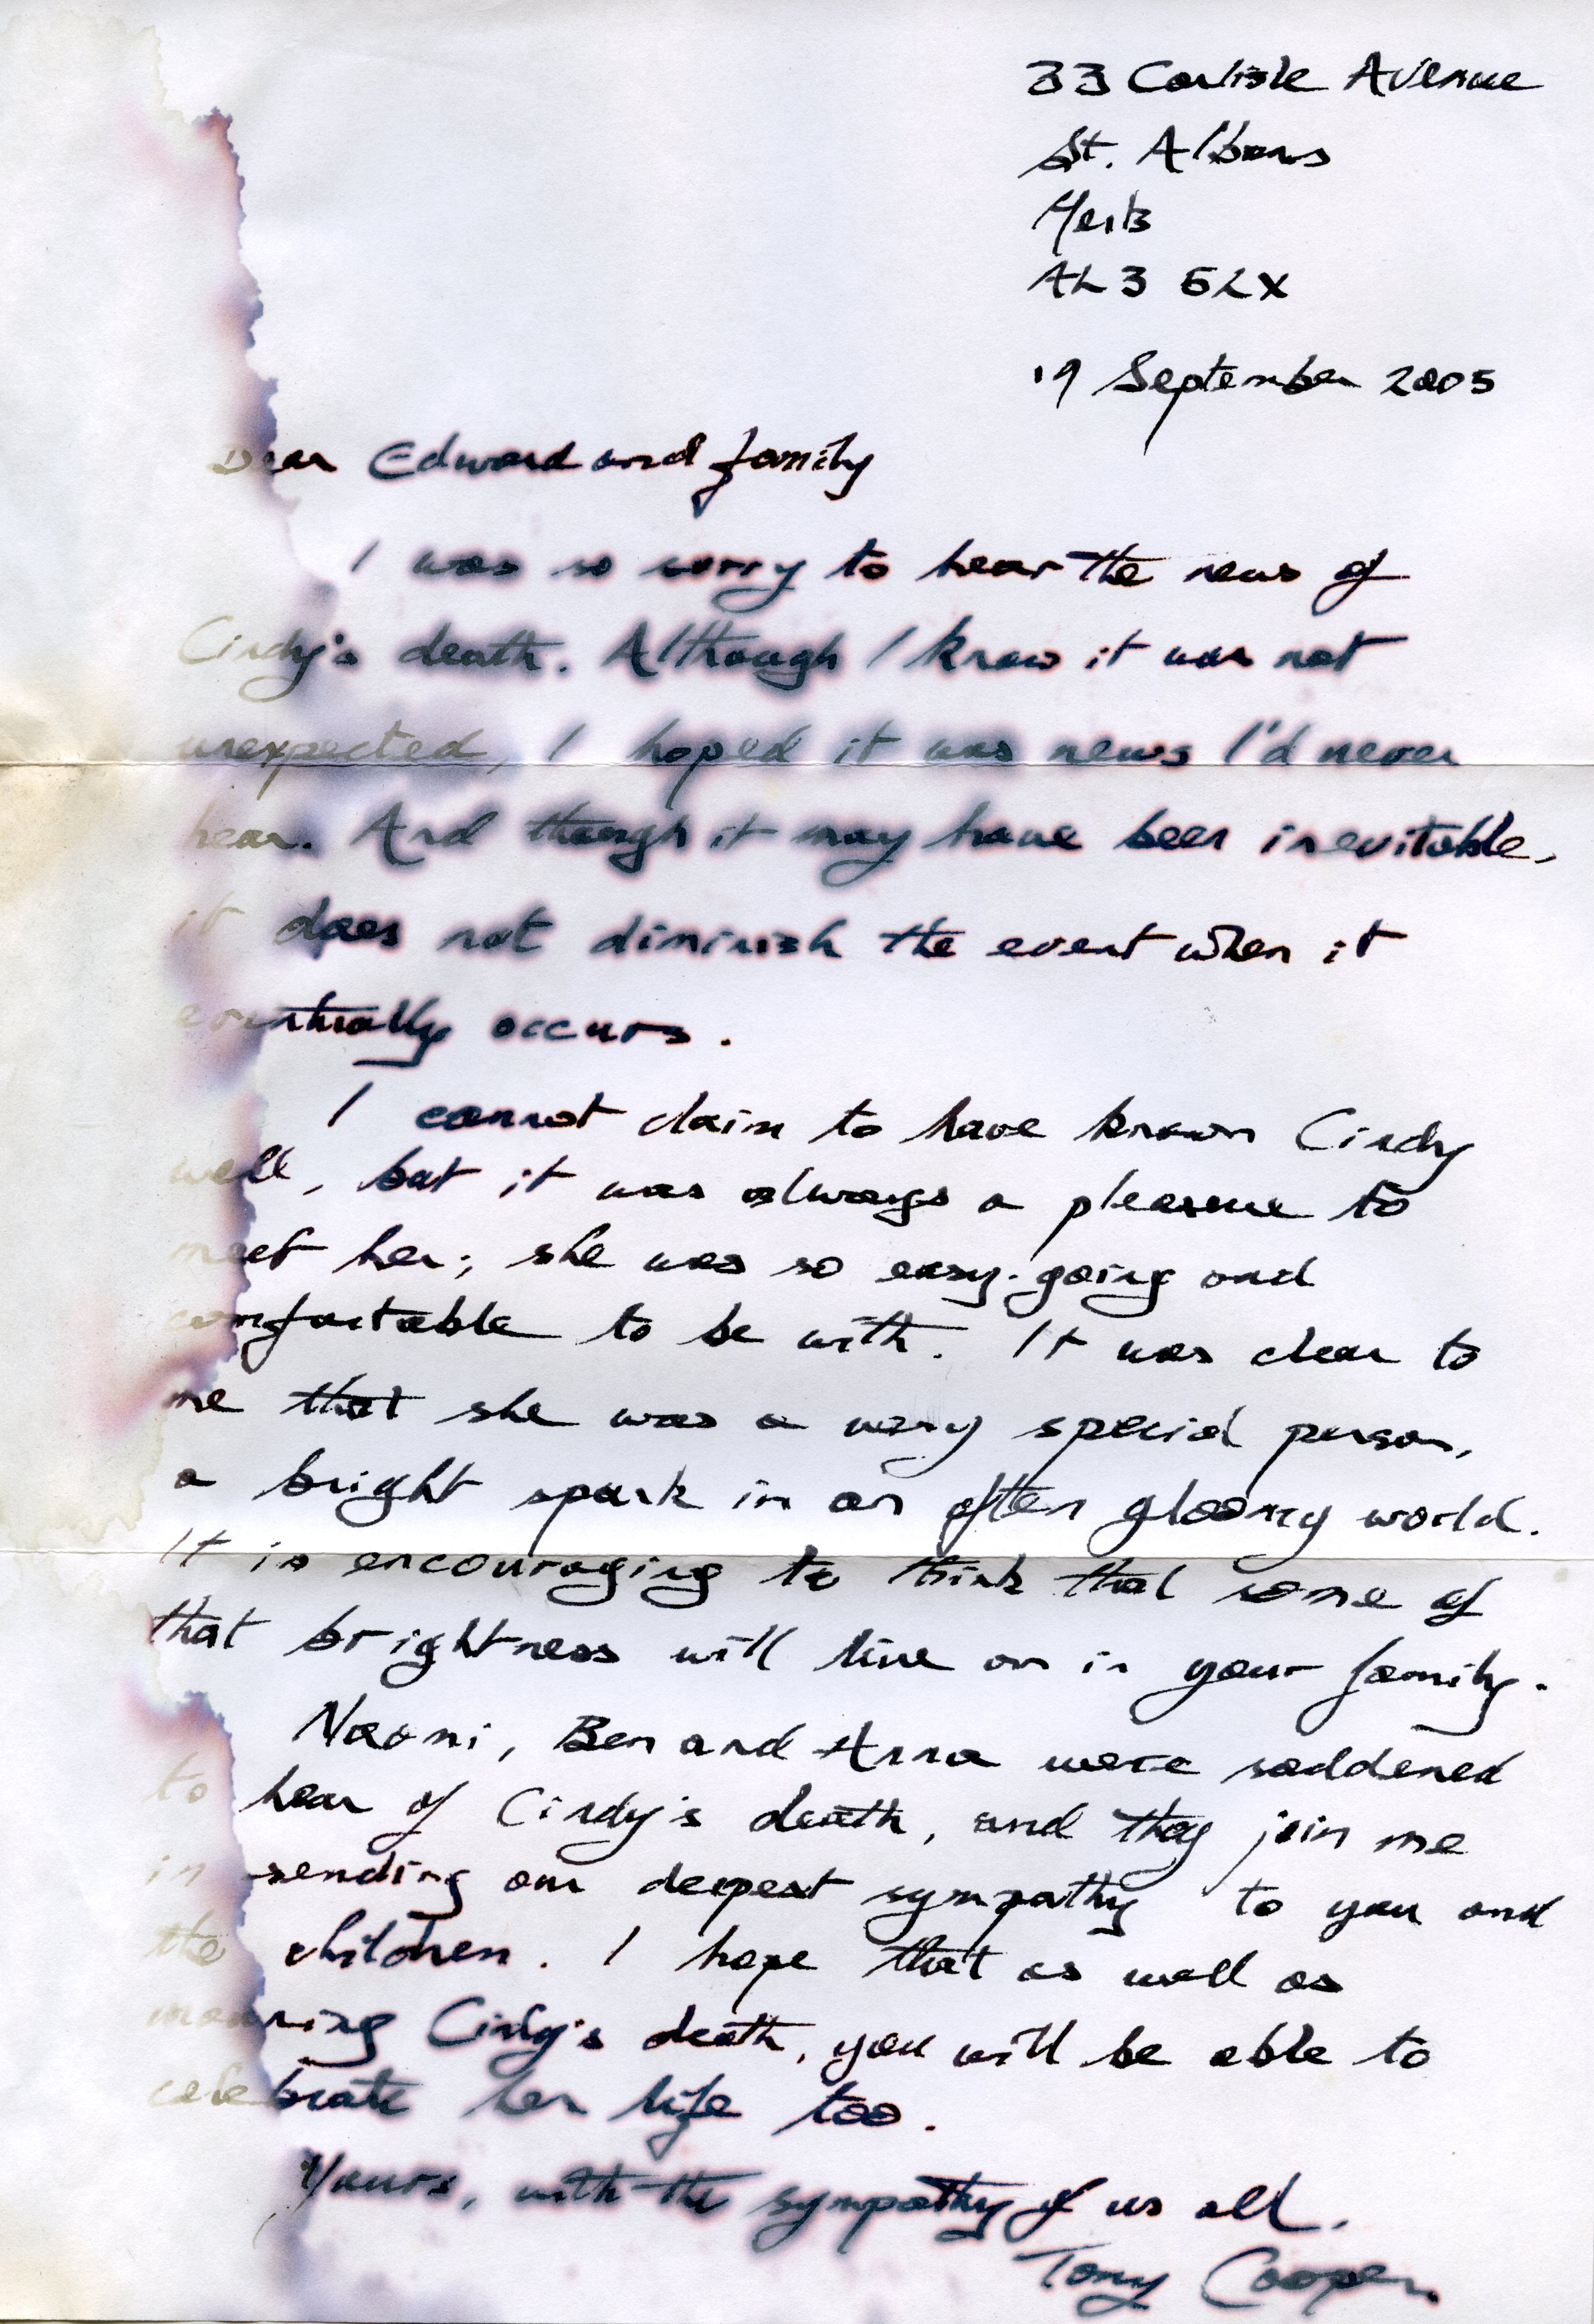 33 Carlisle Avenue
St. Albans
Herts
AL3 5LX
19 September 2005
Dear Edward and family
I was so sorry to hear the news of
Cindy's death. Although I knew it was not
unexpected, I hoped it was news I'd never
hear. And though it may have been inevitable,
it does not diminish the event when it
eventually occurs.
I cannot claim to have known Cindy
well, but it was always a pleasure to
meet her; she was so easy-going and
comfortable to be with. It was clear to
me that she was a very special person,
a bright spark in an often gloomy world.
It is encouraging to think that some of
that brightness will live on in your family.
Naomi, Ben and Anna were saddened
to hear of Cindy's death, and they join me
in sending our deepest sympathy to you and
the children. I hope that as well as
mourning Cindy's death, you will be able to
celebrate her life too.
Yours, with the sympathy of us all.
Tony Cooper.